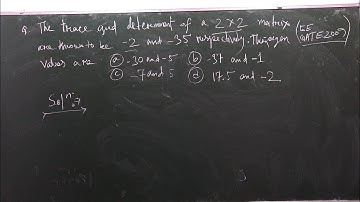 Q. The trace and determinent of a 2×2 matrix
are known to be -2 and -35 respectively. The eigen (EE GATE 2009)
values are (a) -30 and -5 (b) -37 and -1
(c) -7 and 5 (d) 17.5 and -2
Sol^n :→